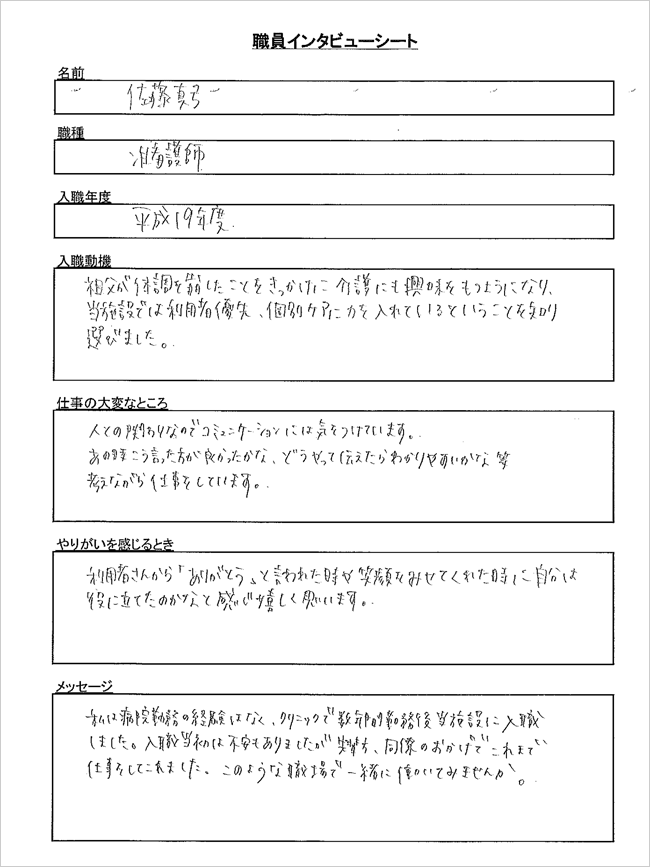 職員インタビューシート
名前
佐藤真弓
職種
准看護師
入職年度
平成19年度.
入職動機
祖父が体調を崩したことをきっかけに介護にも興味をもつようになり、
当施設では利用者優先、個別ケアに力を入れているということを知り
選びました。
仕事の大変なところ
人との関わりなのでコミュニケーションには気をつけています。
あの時こう言った方が良かったかな、どうやって伝えたらわかりやすいかな等
考えながら仕事をしています。
やりがいを感じるとき
利用者さんから「ありがとう」と言われた時や笑顔をみせてくれた時に自分は
役に立てたのかなと感じ嬉しく思います。
メッセージ
私は病院勤務の経験はなく、クリニックで数年間勤務後当施設に入職
しました。入職当初は不安もありましたが先輩方、同僚のおかげでこれまで
仕事をしてこれました。このような職場で一緒に働いてみませんか。